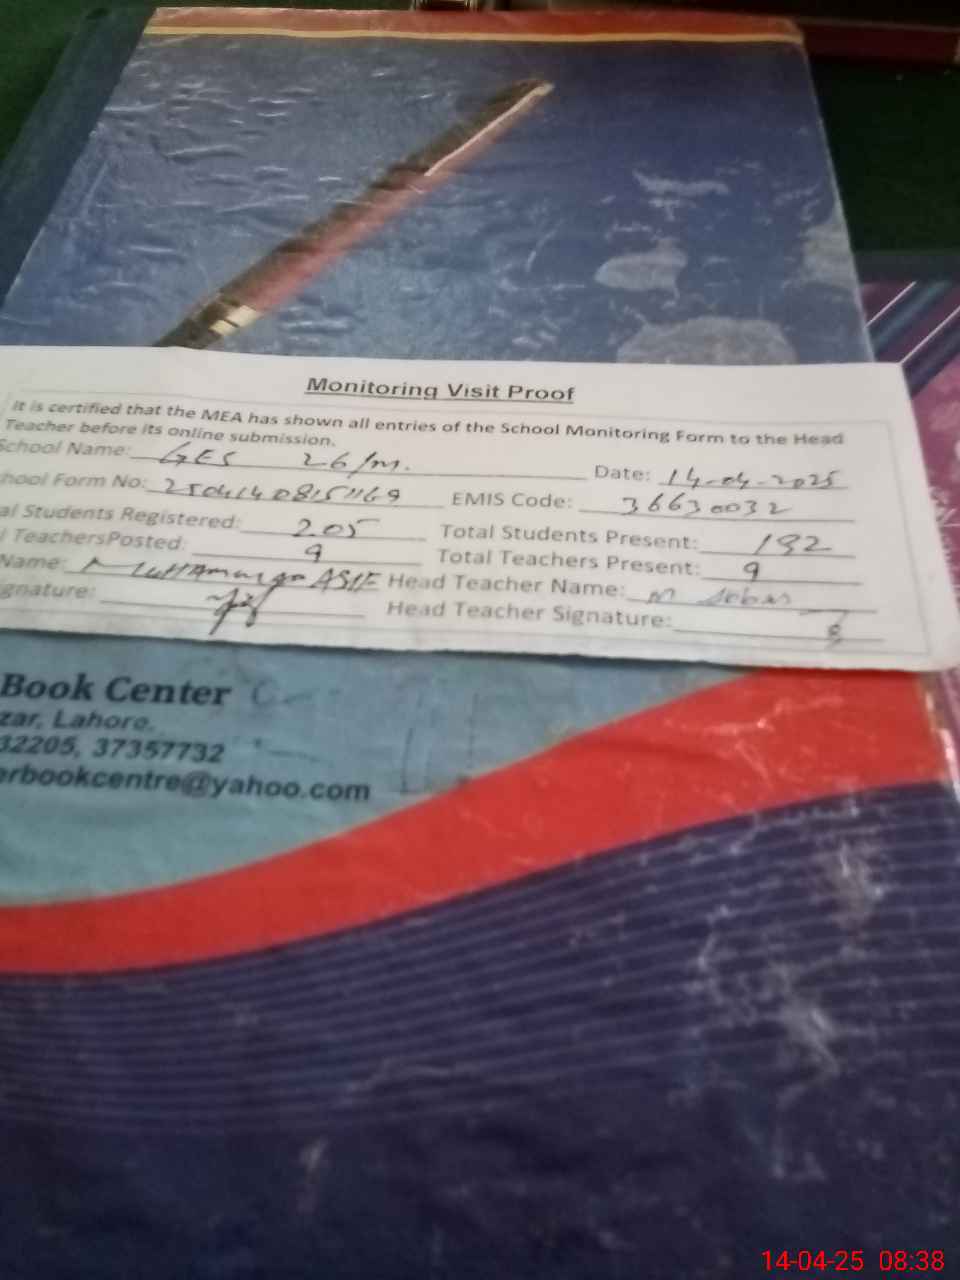 Monitoring Visit Proof
It is certified that the MEA has shown all entries of the School Monitoring Form to the Head
Teacher before its online submission.
School Name: GES 26/M. Date: 14-04-2025
hool Form No: EMIS Code: 36630032
al Students Registered: 205 Total Students Present: 192
l TeachersPosted: 9 Total Teachers Present: 9
Name: Muhammad ASIF Head Teacher Name: M
gnature: Head Teacher Signature:
Book Center
zar, Lahore.
32205, 37357732
erbookcentre@yahoo.com
14-04-25 08:38